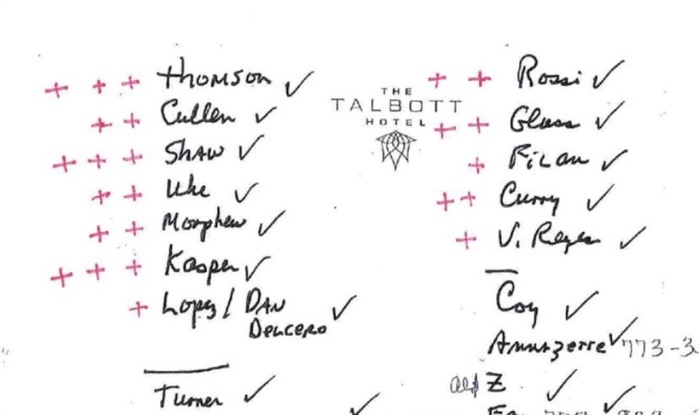 + + + Thomson ✓
+ + Cullen ✓
+ + + Shaw ✓
+ + Uhe ✓
+ + Morphew ✓
+ + + Kasper ✓
+ Lopez / DAN
DELICERO ✓
Turner ✓
THE
TALBOTT
HOTEL
+ + Rossi ✓
+ + Glass ✓
+ Filan ✓
+ + Curry ✓
+ V. Reyes ✓
Coy ✓
✓ 773-3
Z ✓